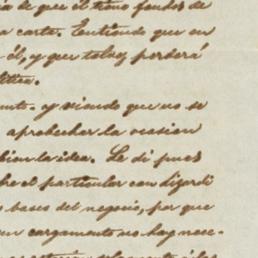 de que él tiene fondos de
a carta. Entiendo que un
él, y que talvez perderá
lítica.
unto. y viendo que no se
aprobechar la ocasion
bien la idea. Le di pues
bre el particular con Lizardi
s bases del negocio, por que
un cargamento no hay nece-